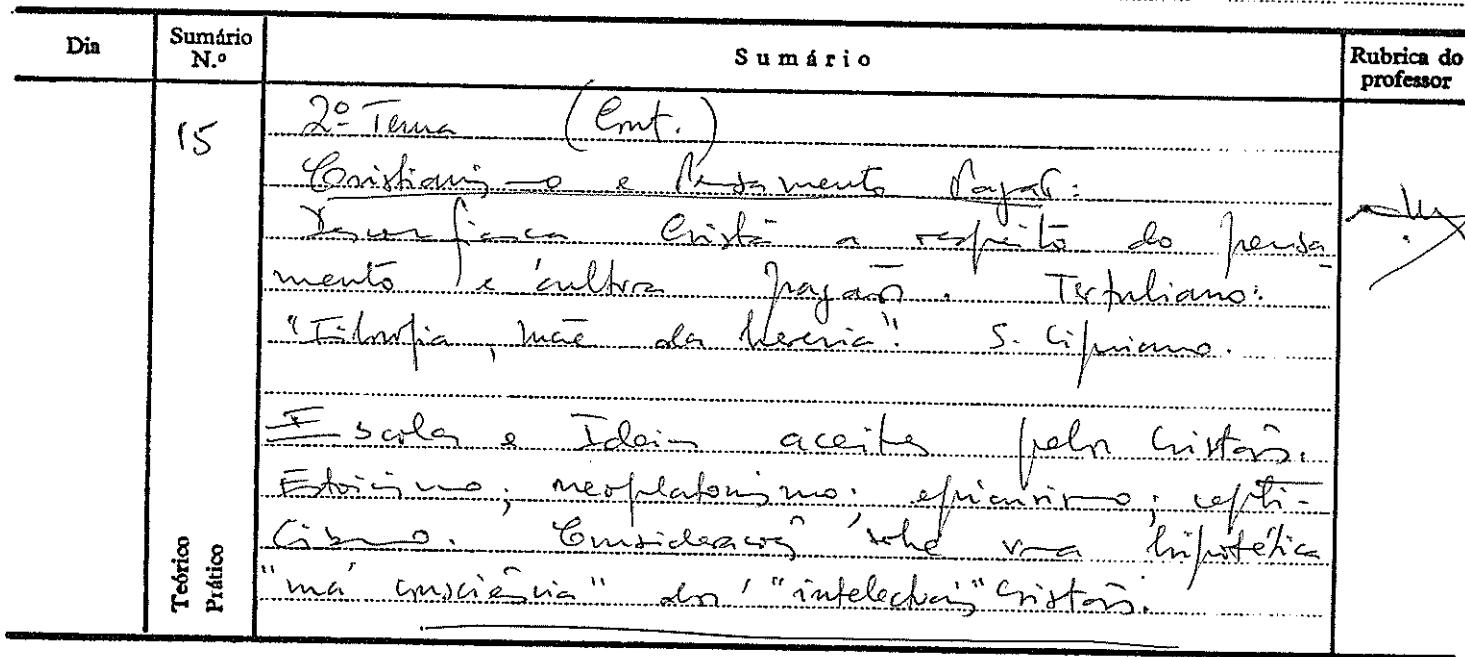 Dia
Sumário N.º
Sumário
Rubrica do professor
15
2º Tema (Cont.)
Cristianismo e Pensamento Pagão:
Desconfiança Cristã a respeito do pensa
mento e cultura pagãos. Tertuliano:
"Filosofia, mãe da heresia". S. Cipriano.
Escolas e Ideias aceites pelos Cristãos.
Estoicismo; neoplatonismo; epicurismo; cepti-
cismo. Considerações sobre uma hipotética
"má consciência" dos "intelectuais" Cristãos.
Teórico
Prático